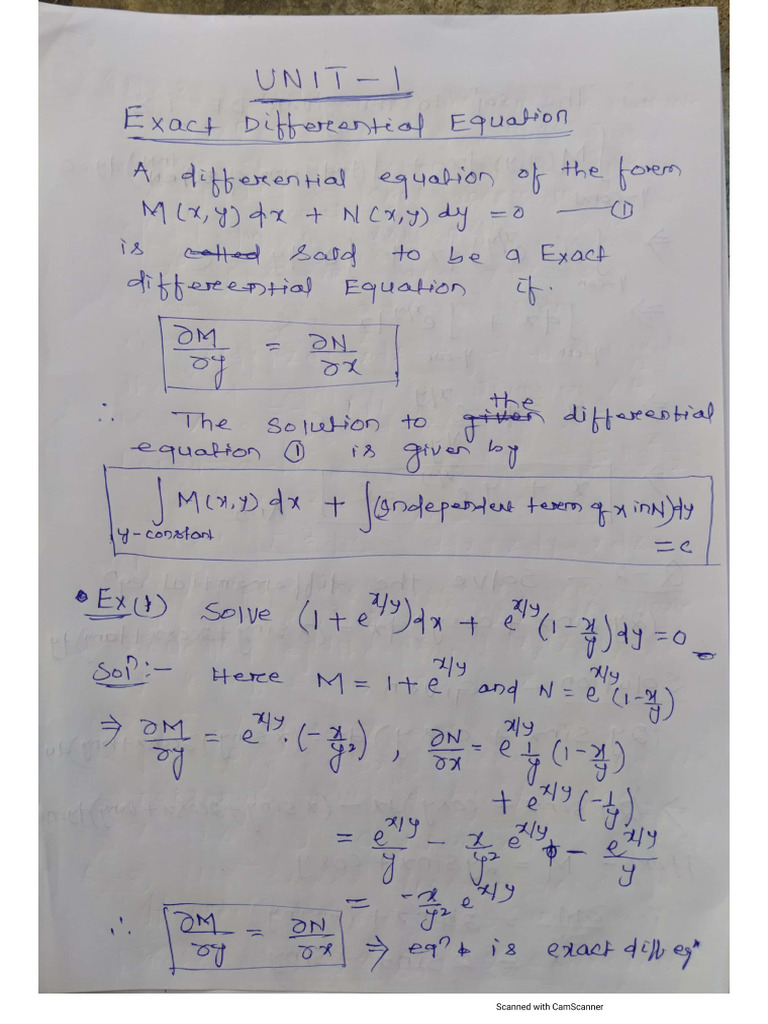 UNIT-1
Exact Differential Equation
A differential equation of the form
M(x,y)dx + N(x,y)dy = 0 —— ①
is called said to be a Exact
differential Equation if.
∂M/∂y = ∂N/∂x
∴ The solution to given the differential
equation ① is given by
∫ M(x,y) dx + ∫(independent term of x in N)dy
y-constant
= c
• Ex(1) Solve (1 + e^{x/y})dx + e^{x/y}(1 - x/y)dy = 0
Solⁿ:- Here M = 1 + e^{x/y} and N = e^{x/y}(1 - x/y)
⇒ ∂M/∂y = e^{x/y}·(-x/y²), ∂N/∂x = e^{x/y} 1/y (1 - x/y)
+ e^{x/y}(-1/y)
= e^{x/y}/y - x/y² e^{x/y} - e^{x/y}/y
= -x/y² e^{x/y}
∴ ∂M/∂y = ∂N/∂x ⇒ eqⁿ is exact diff eqⁿ
Scanned with CamScanner